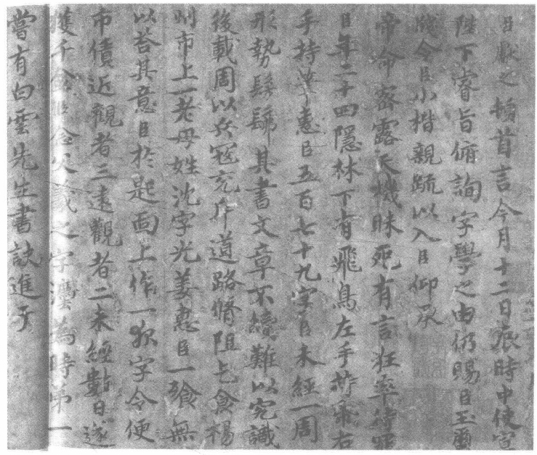 臣献之頓首言今月十二日辰時中使宣
陛下睿旨俯詢字學之由仍賜臣玉
牋令臣小楷親疏以入臣仰承
帝命密露天機昧死有言狂率待罪
臣年二十四隱林下有飛鳥左手持帋右
手持筆惠臣五百七十九字臣未經一周
形勢髣髴其書文章不續難以究識
後載周以兵寇充斥道路脩阻乞食揚
州市上一老母姓沈字光姜惠臣一飡無
以荅其意臣於匙面上作一夜字令便
市債近觀者三遠觀者二未經數日遂
獲千金臣念父羲之字法為時第一
嘗有白雲先生書訣進于